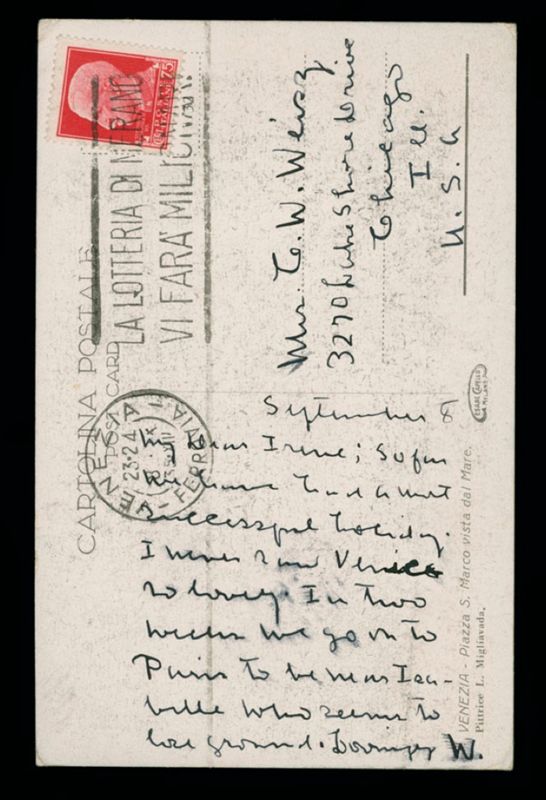 75
LA LOTTERIA DI MERANO
VI FARÀ MILIONARI
CARTOLINA POSTALE
POST CARD
VENEZIA
23-24
FERROVIA
Mrs C. W. Weisz
3270 Lake Shore Drive
Chicago
Ill.
U.S.A
September 8
My Dear Irene; So far
we have had a most
successful holiday.
I never saw Venice
so lovely. In two
weeks we go on to
Paris to be near Isa-
belle who seems to
lose ground. Lovingly W.
VENEZIA - Piazza S. Marco vista dal Mare.
Pittrice L. Migliavada.
CESARE CAPELLO
MILANO